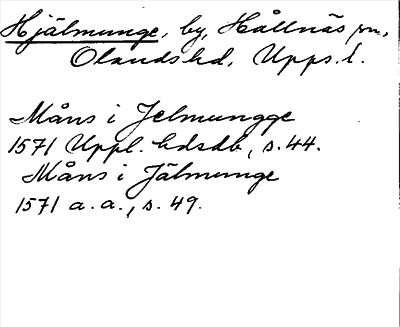 Hjälmunge, by, Hållnäs sn,
Olands hd, Upps. l.
Måns i Jelmungge
1571 Uppl. hdsdb, s. 44.
Måns i Jälmunge
1571 a.a., s. 49.